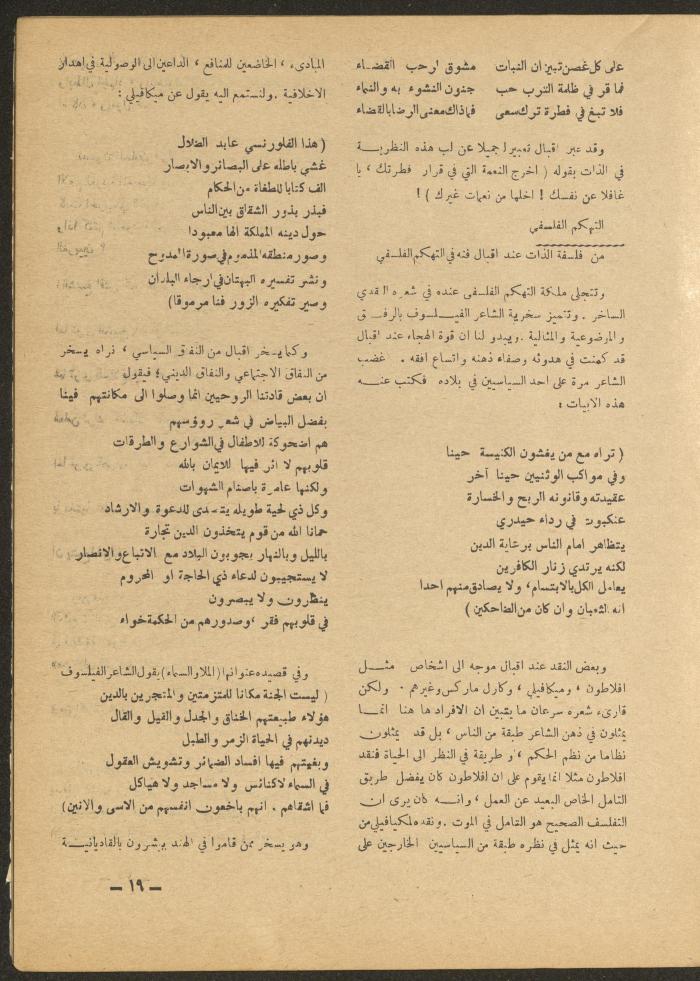 على كل غصن تبين ان النبات مشوق لرحب الفضاء
فما قر في ظلمة الترب حب جنون النشوء به والنماء
فلا تبغ في فطرة ترك سعي فما ذاك معنى الرضا بالقضاء
وقد عبر اقبال تعبيرا جميلا عن لب هذه النظرية
في الذات بقوله ( اخرج النغمة التي في قرار فطرتك ، يا
غافلا عن نفسك ! اخلها من نغمات غيرك ) !
التهكم الفلسفي
من فلسفة الذات عند اقبال فنه في التهكم الفلسفي
وتتجلى ملكة التهكم الفلسفي عنده في شعره النقدي
الساخر . وتتميز سخرية الشاعر الفيلسوف بالرفق
والموضوعية والمثالية . ويبدو لنا ان قوة الهجاء عند اقبال
قد كمنت في هدوئه وصفاء ذهنه واتساع افقه . غضب
الشاعر مرة على احد السياسيين في بلاده فكتب عنه
هذه الابيات :
( تراه مع من يغشون الكنيسة حينا
وفي مواكب الوثنيين حينا آخر
عقيدته وقانونه الربح والخسارة
عنكبوت في رداء حيدري
يتظاهر امام الناس برعاية الدين
لكنه يرتدي زنار الكافرين
يعامل الكل بالابتسام ، ولا يصادق منهم احدا
انه الثعبان وان كان من الضاحكين )
وبعض النقد عند اقبال موجه الى اشخاص مثل
افلاطون ، وميكافيلي ، وكارل ماركس وغيرهم . ولكن
قارىء شعره سرعان ما يتبين ان الافراد ها هنا انما
يمثلون في ذهن الشاعر طبقة من الناس ، بل قد يمثلون
نظاما من نظم الحكم ، او طريقة في النظر الى الحياة فنقد
افلاطون مثلا انما يقوم على ان افلاطون كان يفضل طريق
التأمل الخاص البعيد عن العمل ، وانه كان يرى ان
التفلسف الصحيح هو التأمل في الموت . ونقده لمكيافيلي من
حيث انه يمثل في نظره طبقة من السياسيين الخارجين على
المبادىء ، الخاضعين للمنافع ، الداعين الى الوصولية في اهدار
الاخلاقية . ولنستمع اليه يقول عن ميكافيلي :
( هذا الفلورنسي عابد الضلال
غشي باطله على البصائر والابصار
الف كتابا للطغاة من الحكام
فبذر بذور الشقاق بين الناس
حول دينه المملكة الها معبودا
وصور منطقه المذموم في صورة الممدوح
ونشر تفسيره البهتان في ارجاء البلدان
وصير تفكيره الزور فنا مرموقا)
وكما يسخر اقبال من النفاق السياسي ، نراه يسخر
من النفاق الاجتماعي والنفاق الديني ؛ فيقول
ان بعض قادتنا الروحيين انما وصلوا الى مكانتهم فينا
بفضل البياض في شعر رؤوسهم
هم اضحوكة للاطفال في الشوارع والطرقات
قلوبهم لا اثر فيها للايمان بالله
ولكنها عامرة باصنام الشهوات
وكل ذي لحية طويله يتصدى للدعوة والارشاد
حمانا الله من قوم يتخذون الدين تجارة
بالليل وبالنهار يجوبون البلاد مع الاتباع والانصار
لا يستجيبون لدعاء ذي الحاجة او المحروم
ينظرون ولا يبصرون
في قلوبهم فقر ، وصدورهم من الحكمة خواء
وفي قصيده عنوانها ( الملا والسماء ) يقول الشاعر الفيلسوف
( ليست الجنة مكانا للمتزمتين والمتجرين بالدين
هؤلاء طبيعتهم الخناق والجدل والقيل والقال
ديدنهم في الحياة الزمر والطبل
وبغيتهم فيها افساد الضمائر وتشويش العقول
في السماء لا كنائس ولا مساجد ولا هياكل
فما اشقاهم . انهم باخعون انفسهم من الاسى والانين )
وهو يسخر ممن قاموا في الهند يبشرون بالقاديانية
– ١٩ –